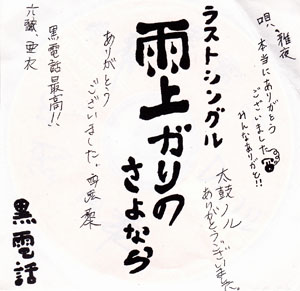 ラストシングル
雨上がりの
さよなら
唄、雅夜
本当にありがとう
ございました
みんなありがと!!
太鼓ノル
ありがとうございました。
ありがとう
ございました。
黒電話最高!!
六絃、亜衣
黒電話